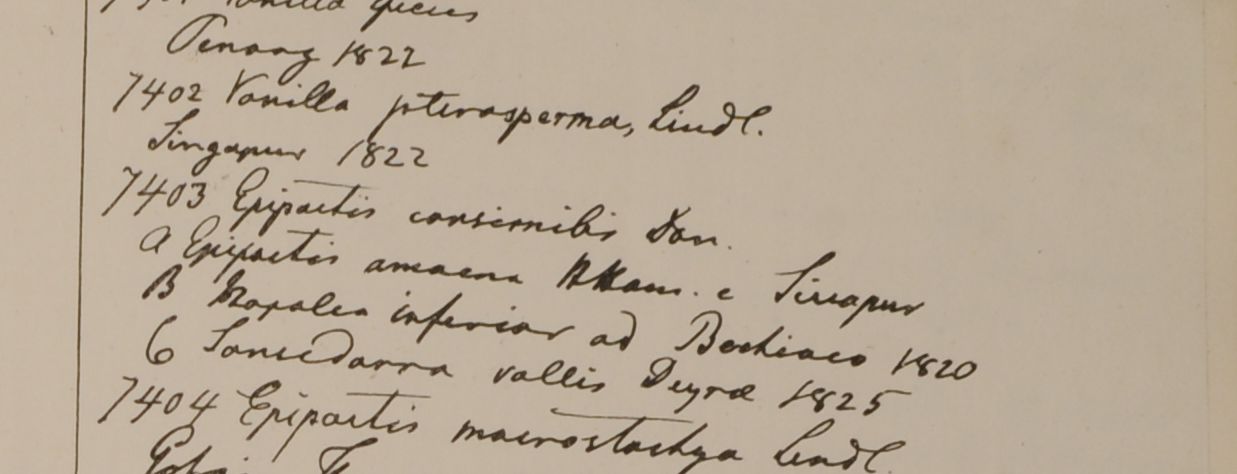 Vanilla species
Penang 1822
7402 Vanilla pterosperma, Lindl.
Singapur 1822
7403 Epipactis consimilis Don.
a Epipactis amaena Ham. e Sirrapur
B Napalea inferior ad Bechiaco 1820
6 Sansedarra vallis Deyrae 1825
7404 Epipactis macrostachya Lindl.